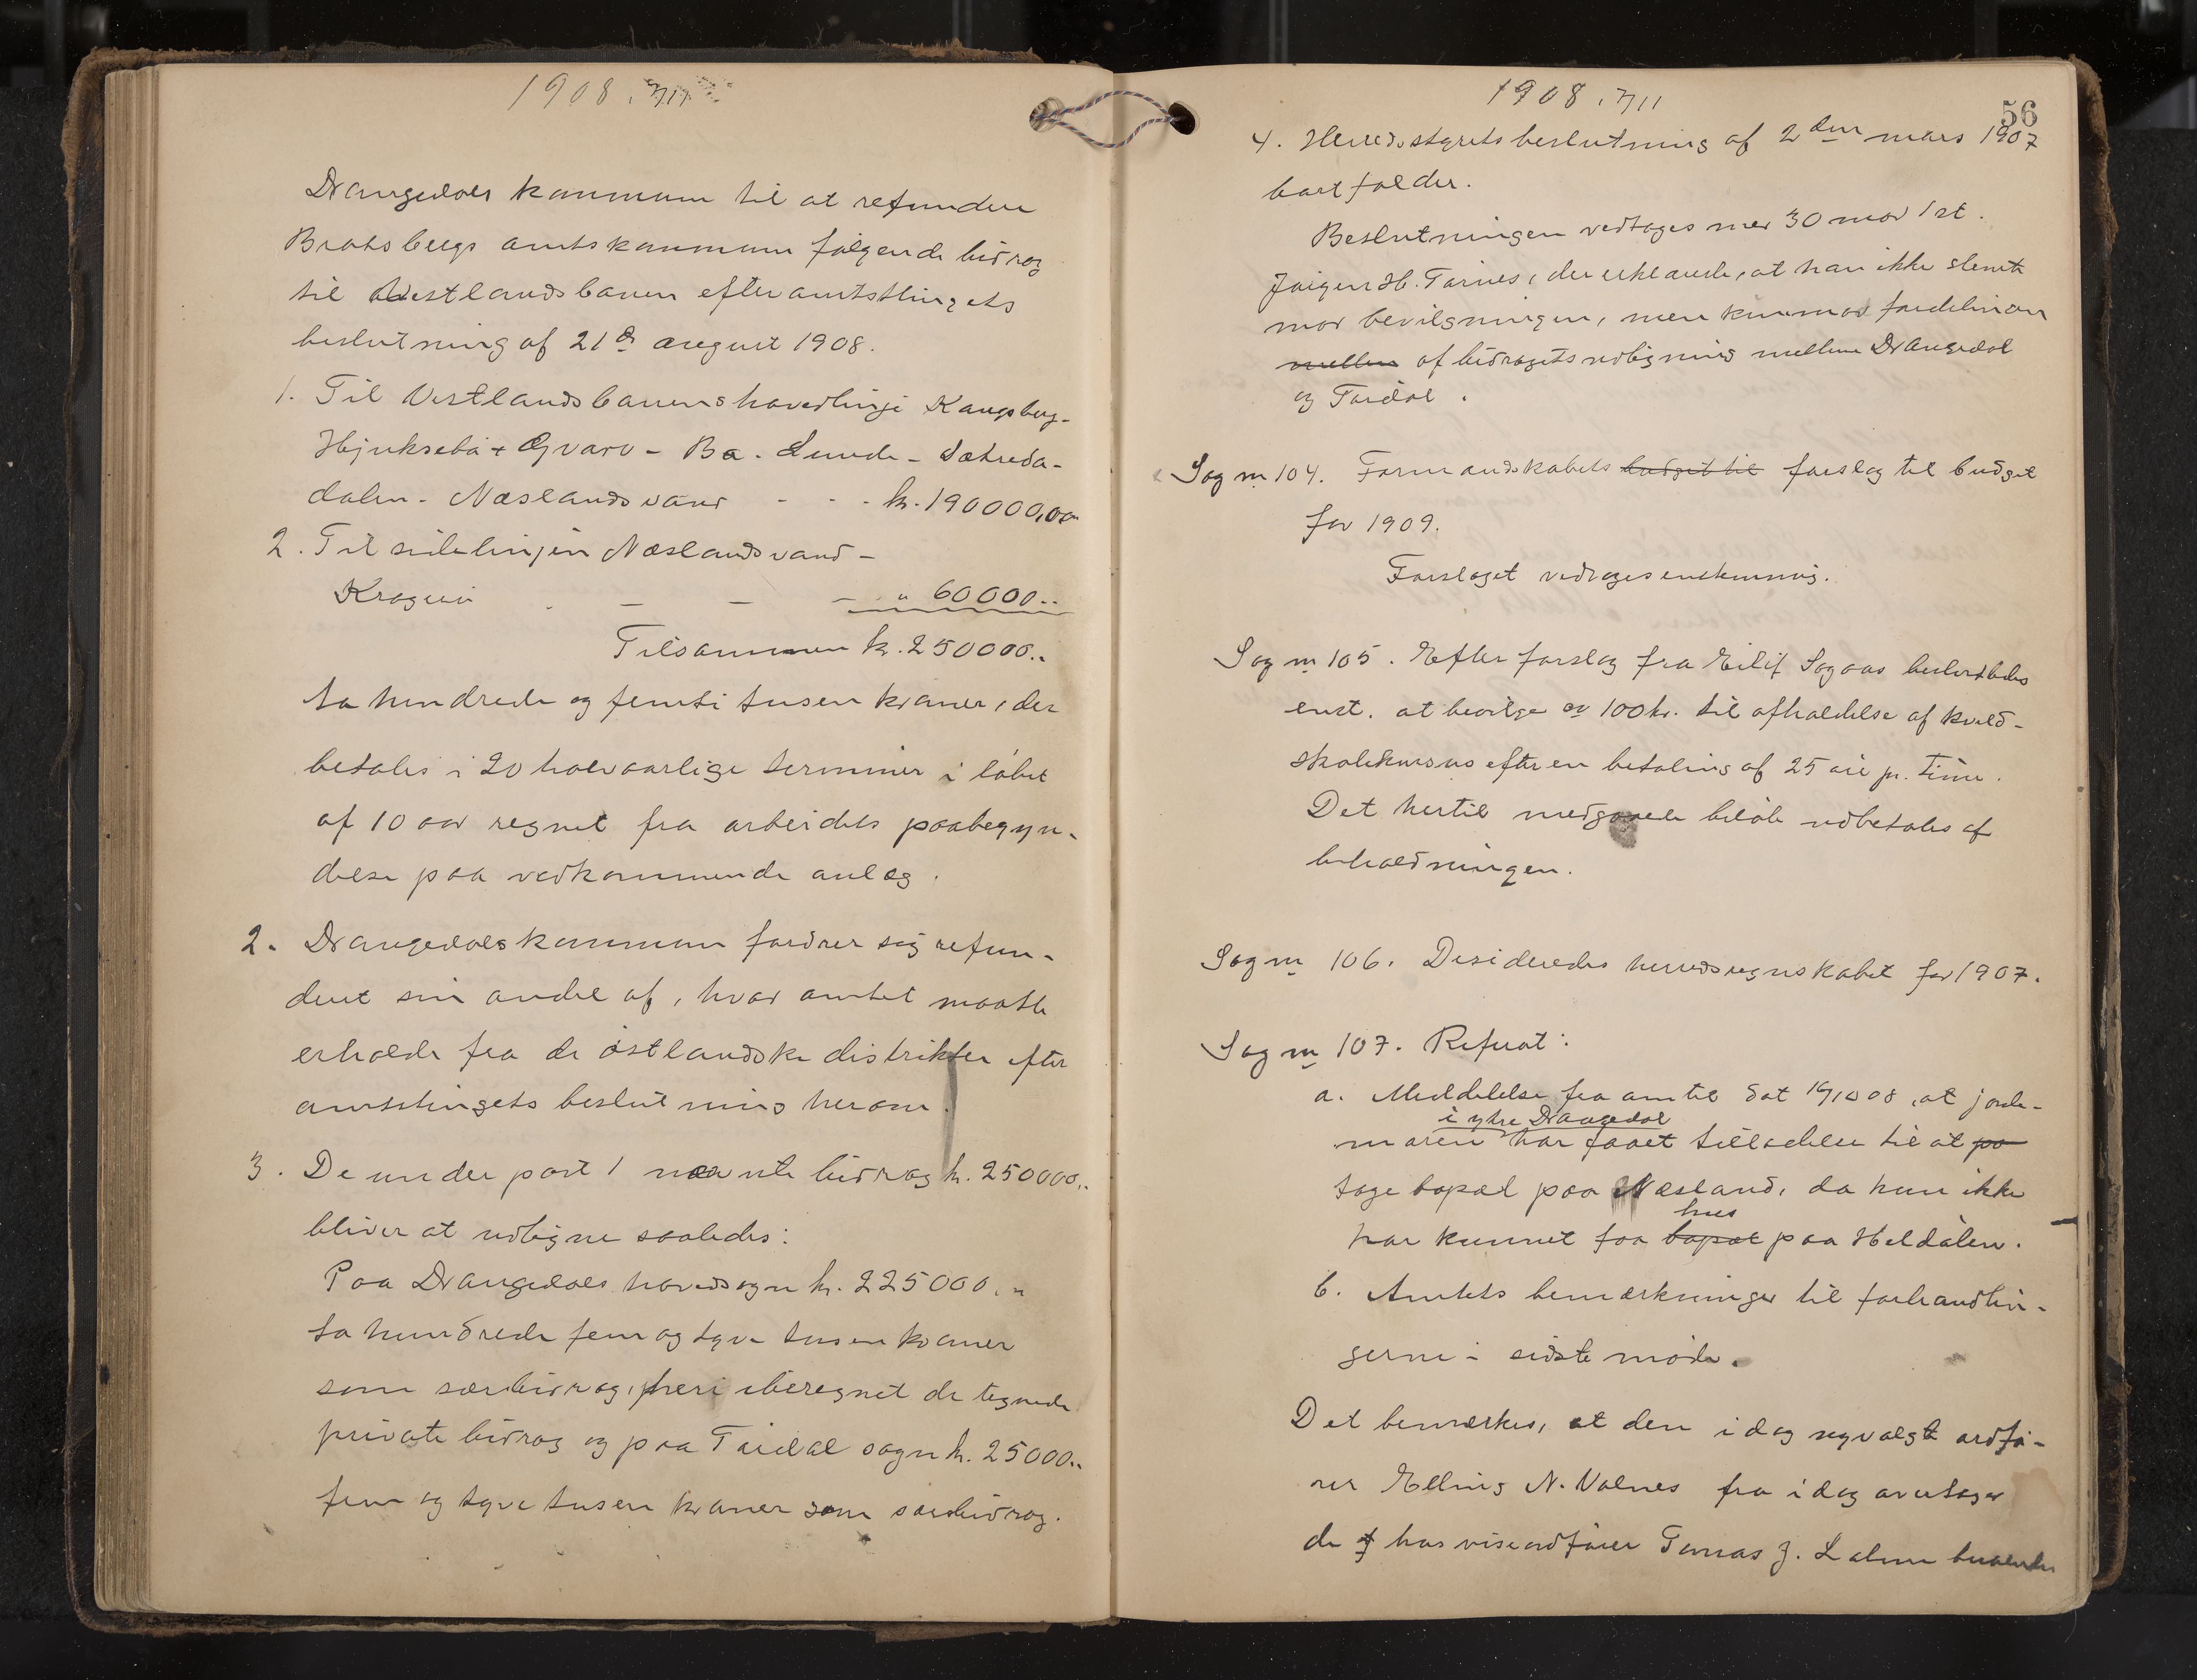 1908. 7/11
Drangedals kommune til at refundere
Bratsbergs amtskommune følgende bidrag
til Vestlandsbanen efter amtstingets
beslutning af 21de august 1908.
1. Til Vestlandsbanens hovedlinje Kongsberg-
Hjuksebø - Gvarv - Bø - Lunde - Sætreda-
dalen - Næslandsvand - - - kr. 190000,00
2. Til sidelinjen Næslandsvand -
Kragerø - - - - " 60000..
Tilsammen kr. 250000..
to hundrede og femti tusen kroner, der
betales i 20 halvaarlige terminer i løbet
af 10 aar regnet fra arbeidets paabegyn-
delse paa vedkommende anlæg.
2. Drangedals kommune fordrer sig refun-
dert sin andel af, hvad amtet maatte
erholde fra de østlandske distrikter efter
amtstingets beslutning herom.
3. De under post 1 nævnte bidrag kr. 250000..
bliver at udligne saaledes:
Paa Drangedals hovedsogn kr. 225000. "
to hundrede fem og tyve tusen kroner
som særbidrag, heri iberegnet de tegnede
private bidrag og paa Tørdal sogn kr. 25000..
fem og tyve tusen kroner som særbidrag.
1908. 7/11
56
4. Herredsstyrets beslutning af 2den mars 1907
bortfalder.
Beslutningen vedtages med 30 mod 1 st.
Jørgen H. Tørnes, der erklærede, at han ikke stemte
mod bevilgningen, men kun mod fordelingen
mellem af bidragets udligning mellem Drangedal
og Tørdal.
Sag nr 104. Formandskabets budget til forslag til budget
for 1909.
Forslaget vedtages enstemmig.
Sag nr 105. Efter forslag fra Eilif Sogaas besluttedes
enst. at bevilge 100 kr. til afholdelse af kveld-
skolekursus efter en betaling af 25 øre pr. time.
Det hertil medgaaede beløb udbetales af
beholdningen.
Sag nr 106. Desideredes herredsregnskabet for 1907.
Sag nr 107. Referat:
a. Meddelelse fra amtet dat 16/10 08, at jorde-
i ytre Drangedal
moren har faaet tilladelse til at pa
tage bopæl paa Næsland, da hun ikke
hus
har kunnet faa bopæl paa Heldalen.
b. Amtets bemærkninger til forhandlin-
gerne i sidste møde.
Det bemærkes, at den idag nyvalgte ordfø-
rer Elling N. Valnes fra idag overtager
de hos viseordfører Tomas J. Lalum beroende